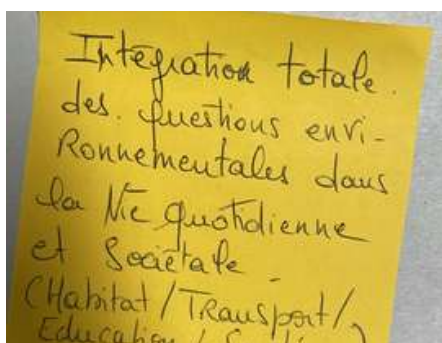 Intégration totale.
des questions envi-
Ronnementales dans
la Vie quotidienne
et Sociétale.
(Habitat / Transport /
Education /